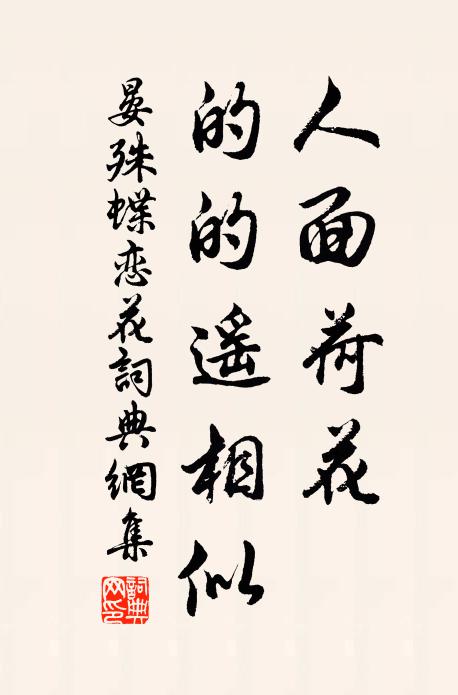 人面荷花
的的遥相似
晏殊蝶恋花詞典網集
詞典網印